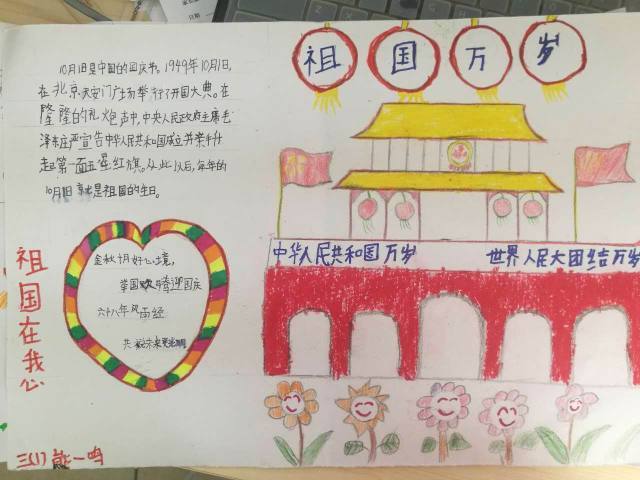 祖国万岁
10月1日是中国的国庆节。1949年10月1日,
在北京天安门广场举行了开国大典。在
隆隆的礼炮声中,中央人民政府主席毛
泽东庄严宣告中华人民共和国成立并亲手升
起第一面五星红旗。从此以后,每年的
10月1日就是祖国的生日。
中华人民共和国万岁
世界人民大团结万岁
金秋十月好心境,
举国欢腾迎国庆
六十八年风雨经
共献未来更光明
祖国在我心
三(1) 熊一鸣